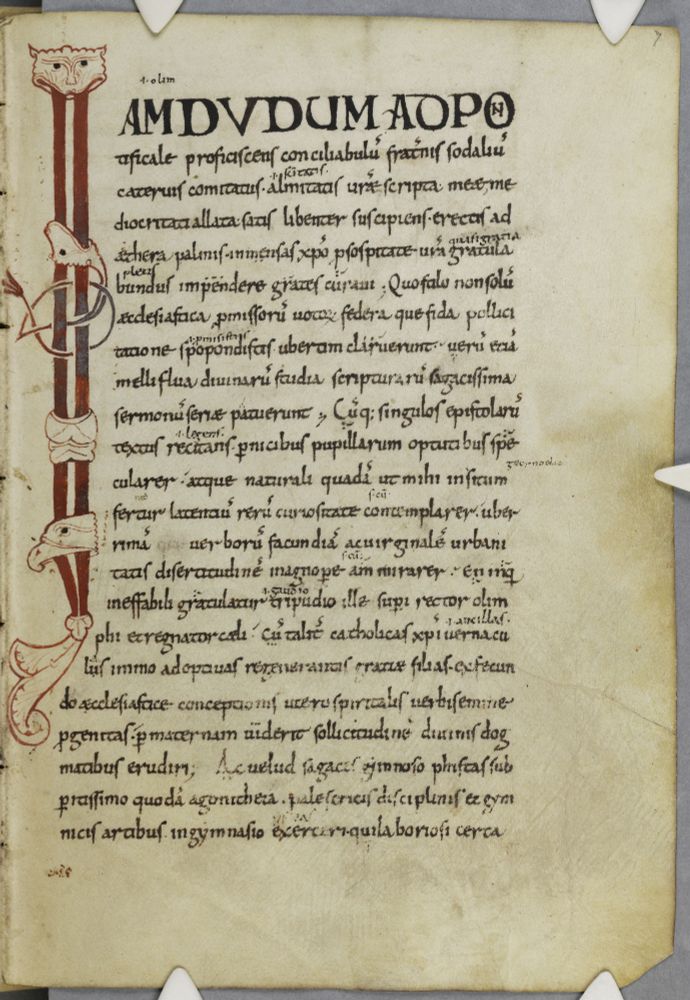 7
.i. olim
IAMDVDUM AD PON
tificale proficiscens conciliabulū frat̄nis sodaliū
.i. sc̄itatis
cateruis comitatus· almitatis urǣ scripta meæ me
diocritati allata satis libenter suscipiens· erectis ad
quasi gratia
æthera palmis· inmensas xp̄o ꝓ sospitate urā gratula
plenus
bundus impendere grates curaui ; Quo stilo non solū
æcclesiastica ꝓmissorū uotoꝝ federa que fida pollici
.i. ꝓmisistis
tatione spopondistis ubertim claruerunt· uerū etiā
melliflua diuinarū studia scripturarū sagacissima
sermonū serie patuerunt ; Cūq; singulos epistolarū
.i. legens
textus recitans ꝑnicibus pupillarum optutibus spe
cularer· atque naturali quadā ut mihi insitum
fertur latentiū rerū curiositate contemplarer· uber
rimā uerborū facundiā ac uirginalē urbani
.s. cū
tatis disertitudinē magnopere ammirarer· En inq̄
.i. gaudio
ineffabili gratulatur tripudio ille supi rector olim
.i. ancillas
phi et regnator cæli· Cū talit̄ catholicas xp̄i uernacu
las immo adoptiuas regenerantis gratiæ filias· ex fecun
do æcclesiastice conceptionis utero spiritalis uerbi semine
ꝓgenitas· ꝑ maternam uiderit sollicitudinē diuinis dog
matibus erudiri ; Ac uelud sagaces gimnosophistas sub
ꝑitissimo quodā agonitheta· palestricis disciplinis et gym
nicis artibus in gymnasio exerceri· qui laboriosi certa